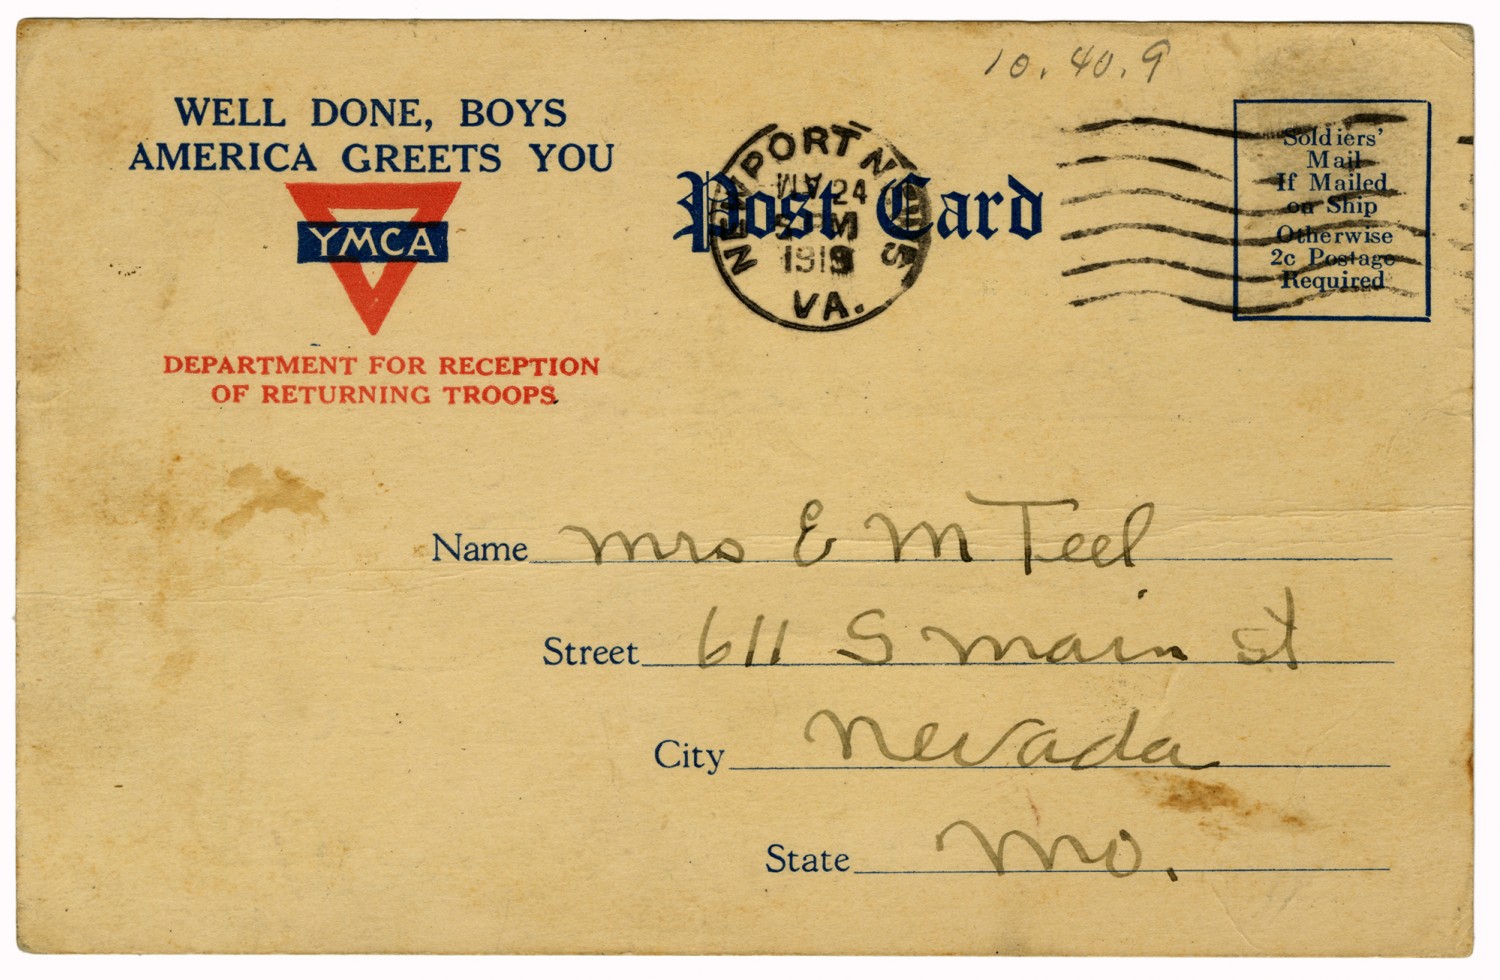 10.40.9
WELL DONE, BOYS
AMERICA GREETS YOU
YMCA
DEPARTMENT FOR RECEPTION
OF RETURNING TROOPS
Post Card
NEWPORT NEWS
24
PM
1919
VA.
Soldiers'
Mail
If Mailed
on Ship
Otherwise
2c Postage
Required
Name Mrs E M Teel
Street 611 S Main st
City Nevada
State Mo.